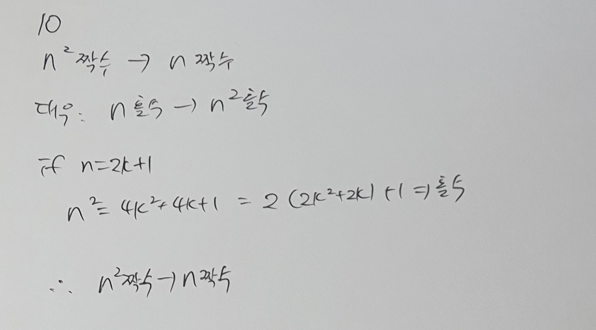 10
n² 짝수 → n 짝수
대우: n 홀수 → n² 홀수
if n=2k+1
n² = 4k²+4k+1 = 2(2k²+2k)+1 ⇒ 홀수
∴ n² 짝수 → n 짝수